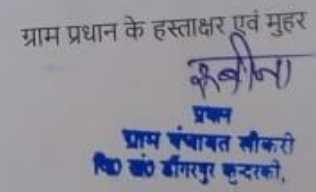 ग्राम प्रधान के हस्ताक्षर एवं मुहर
रूबीना
प्रधान
ग्राम पंचायत सीकरी
वि० खं० डींगरपुर कुन्दरकी,